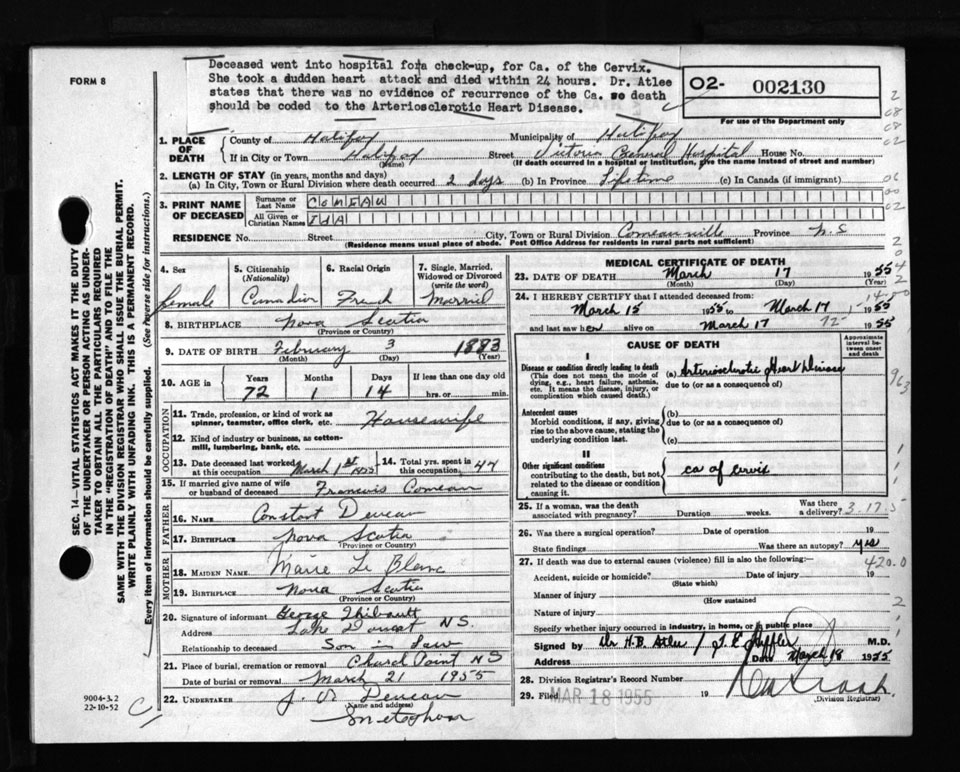 FORM 8
Deceased went into hospital fora check-up, for Ca. of the Cervix.
She took a dudden heart attack and died within 24 hours. Dr. Atlee
states that there was no evidence of recurrence of the Ca. so death
should be coded to the Arteriosclerotic Heart Disease.
02- 002130
For use of the Department only
SEC. 14—VITAL STATISTICS ACT MAKES IT THE DUTY
OF THE UNDERTAKER OR PERSON ACTING AS UNDER-
TAKER TO OBTAIN ALL THE PARTICULARS REQUIRED
IN THE "REGISTRATION OF DEATH" AND TO FILE THE
SAME WITH THE DIVISION REGISTRAR WHO SHALL ISSUE THE BURIAL PERMIT.
WRITE PLAINLY WITH UNFADING INK. THIS IS A PERMANENT RECORD.
Every item of information should be carefully supplied. (See reverse side for instructions.)
1. PLACE OF DEATH
County of Halifax Municipality of Halifax
If in City or Town Halifax Street Victoria General Hospital House No.
(Name) (If death occurred in a hospital or institution, give the name instead of street and number)
2. LENGTH OF STAY (in years, months and days)
(a) In City, Town or Rural Division where death occurred 2 days (b) In Province Lifetime (c) In Canada (if immigrant)
3. PRINT NAME OF DECEASED
Surname or Last Name COMEAU
All Given or Christian Names IDA
RESIDENCE No. Street City, Town or Rural Division Comeauville Province N.S
(Residence means usual place of abode. Post Office Address for residents in rural parts not sufficient)
4. Sex
female
5. Citizenship (Nationality)
Canadian
6. Racial Origin
French
7. Single, Married, Widowed or Divorced (write the word)
Married
8. BIRTHPLACE Nova Scotia
(Province or Country)
9. DATE OF BIRTH February 3 1883
(Month) (Day) (Year)
10. AGE in
Years Months Days If less than one day old
72 1 14 hrs. or min.
OCCUPATION
11. Trade, profession, or kind of work as spinner, teamster, office clerk, etc. Housewife
12. Kind of industry or business, as cotton-mill, lumbering, bank, etc.
13. Date deceased last worked at this occupation March 1st 1955
14. Total yrs. spent in this occupation 47
15. If married give name of wife or husband of deceased Francois Comeau
FATHER
16. NAME Constant Deveau
17. BIRTHPLACE Nova Scotia
(Province or Country)
MOTHER
18. MAIDEN NAME Marie Le Blanc
19. BIRTHPLACE Nova Scotia
(Province or Country)
20. Signature of informant George Thibault
Address Lake Doucet N.S.
Relationship to deceased Son in Law
21. Place of burial, cremation or removal Church Point N S
Date of burial or removal March 21 1955
22. UNDERTAKER J. Deveau
(Name and address)
Meteghan
9004-3.2
22-10-52
MEDICAL CERTIFICATE OF DEATH
23. DATE OF DEATH March 17 1955
(Month) (Day) (Year)
24. I HEREBY CERTIFY that I attended deceased from:
March 15 1955 to March 17 1955
and last saw her alive on March 17 1955
CAUSE OF DEATH
Approximate interval between onset and death
I
Disease or condition directly leading to death
(This does not mean the mode of dying, e.g., heart failure, asthenia, etc. It means the disease, injury, or complication which caused death.)
(a) Arteriosclerotic Heart Disease
due to (or as a consequence of)
Antecedent causes
Morbid conditions, if any, giving rise to the above cause, stating the underlying condition last.
(b)
due to (or as a consequence of)
(c)
II
Other significant conditions
contributing to the death, but not related to the disease or condition causing it.
ca of cervix
25. If a woman, was the death associated with pregnancy? Duration weeks. Was there a delivery?
26. Was there a surgical operation? Date of operation 19
State findings Was there an autopsy? yes
27. If death was due to external causes (violence) fill in also the following:—
Accident, suicide or homicide? Date of injury 19
(State which)
Manner of injury
(How sustained
Nature of injury
Specify whether injury occurred in industry, in home, or in public place
Signed by Dr H.B. Atlee / M.D.
Address Date March 18 1955
28. Division Registrar's Record Number
29. Filed MAR 18 1955 19
(Division Registrar)
963
420.0